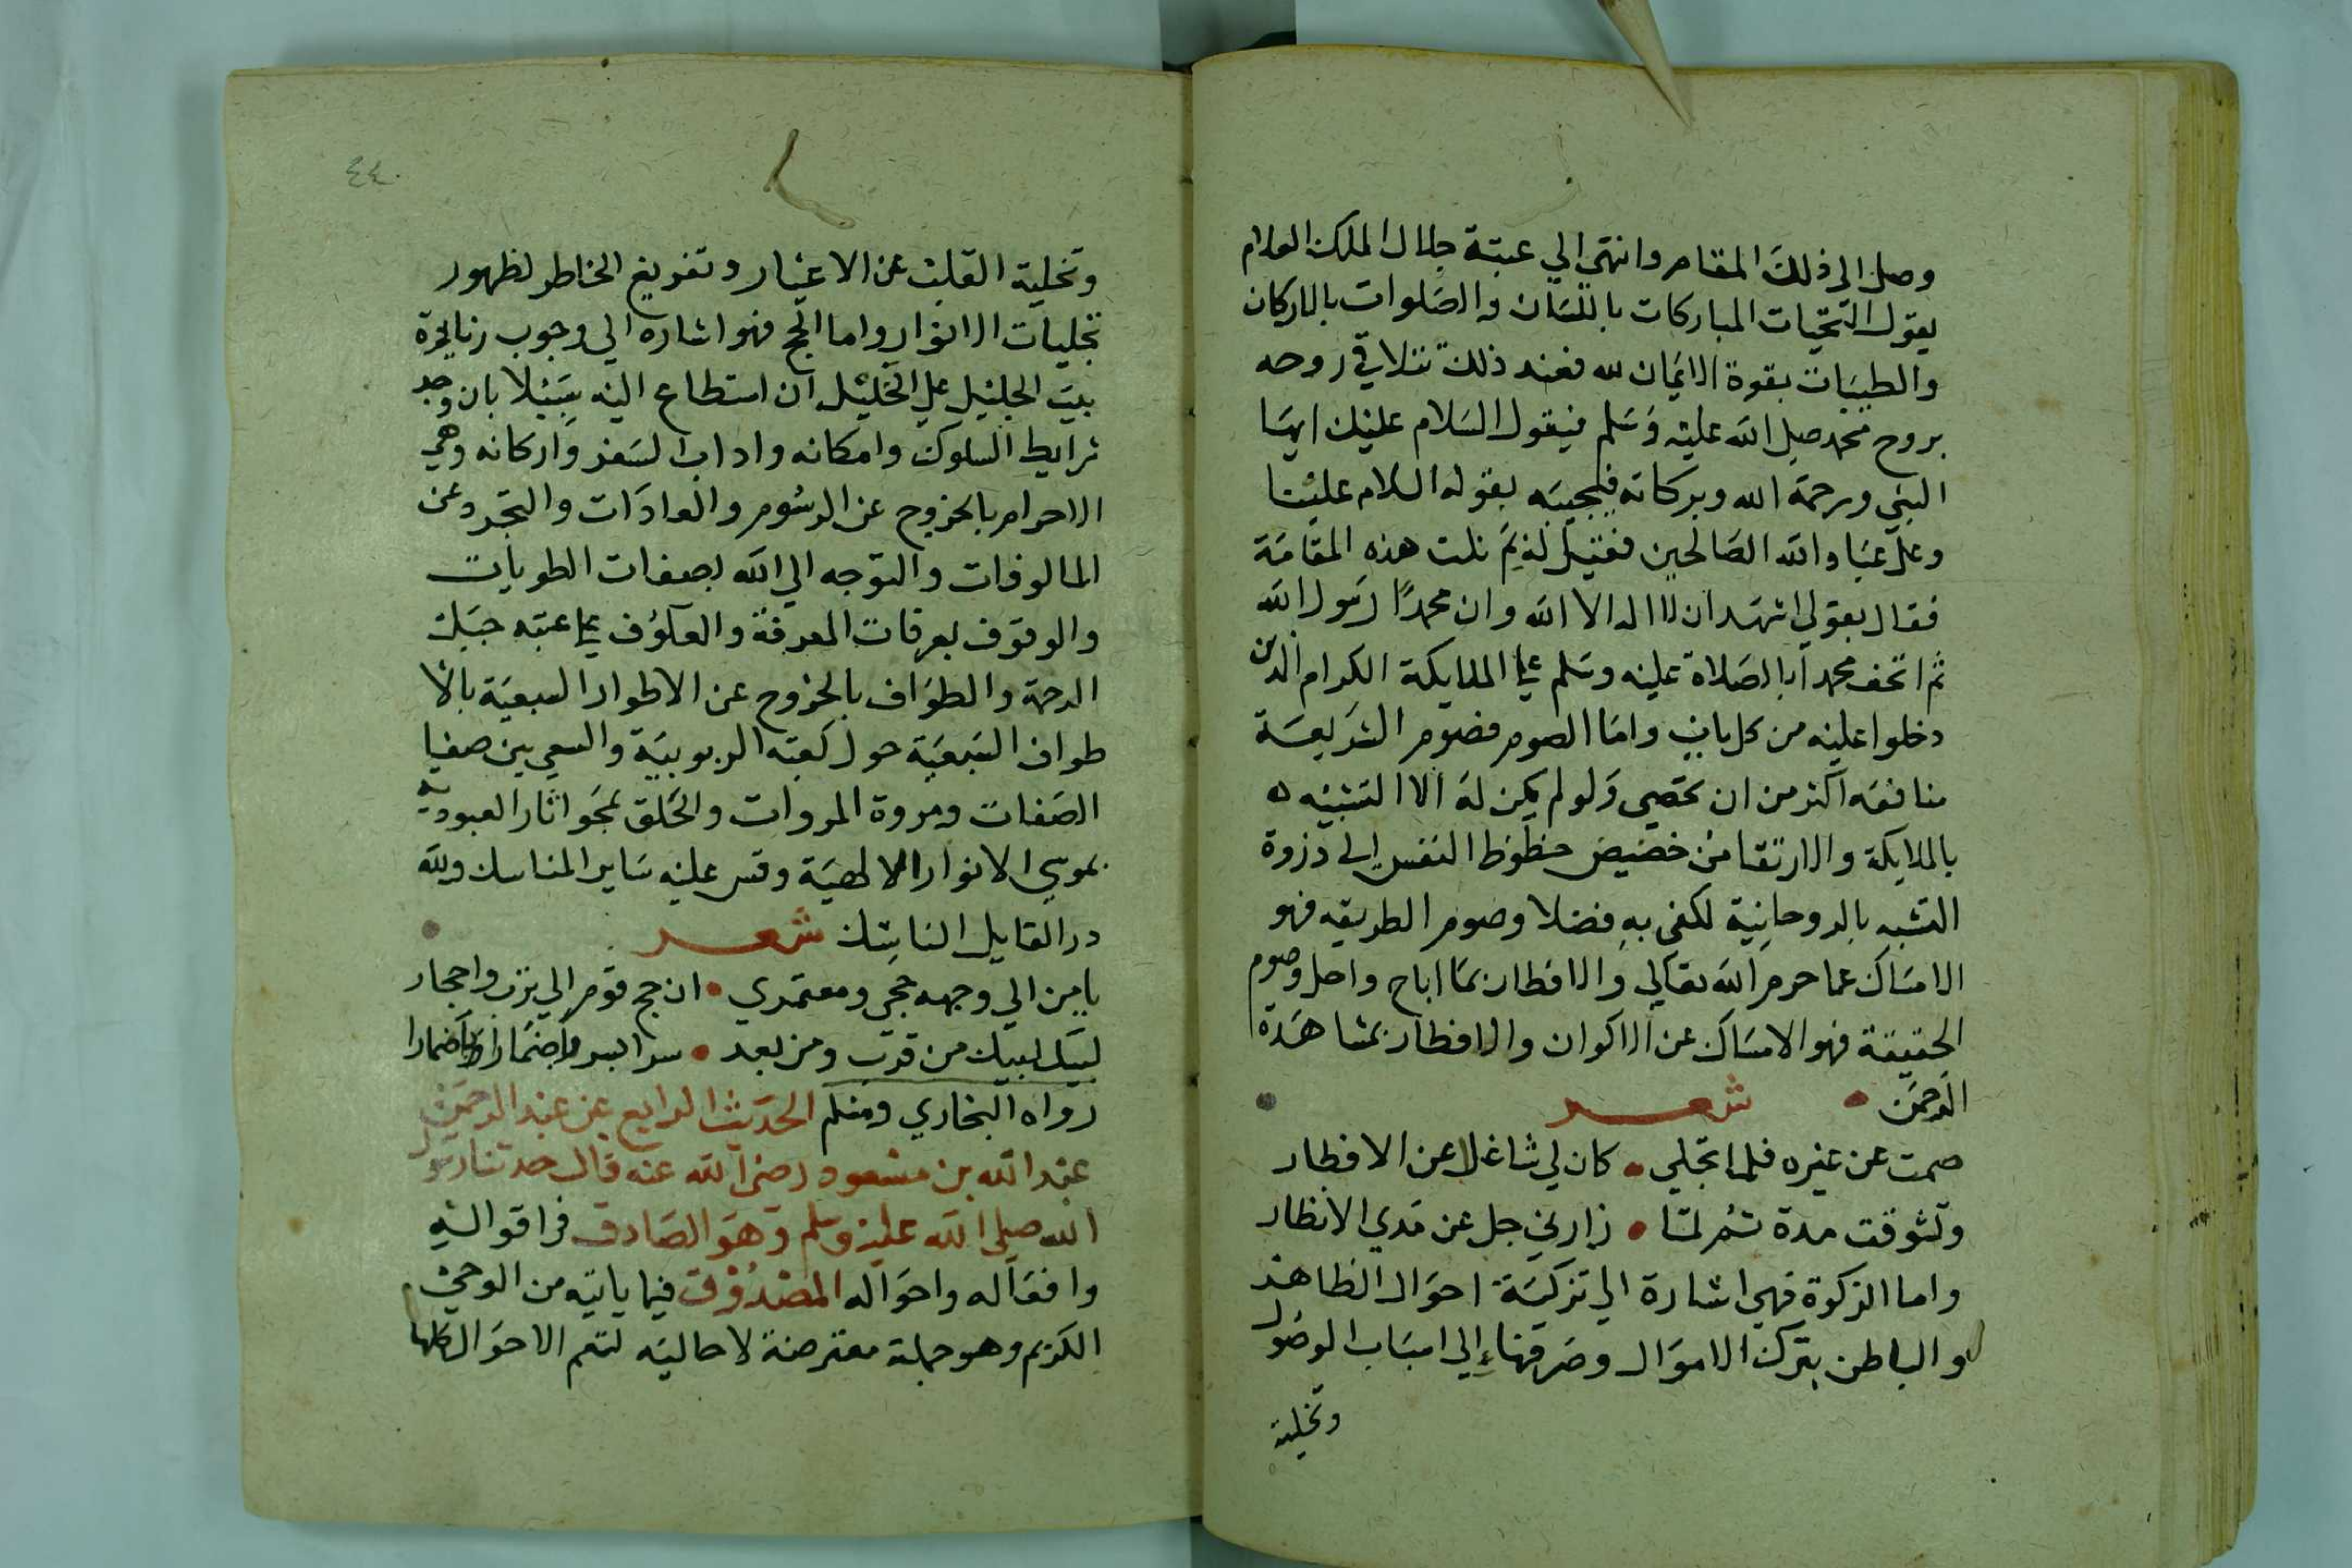 وصل الى ذلك المقام وانتهى الي عتبة جلال الملك العلام
يقول التحيات المباركات باللسان والصلوات بالاركان
والطيبات بقوة الايمان لله فعند ذلك تتلاقي روحه
بروح محمد صلى الله عليه وسلم فيقول السلام عليك ايها
النبي ورحمة الله وبركاته فيجيبه بقوله السلام علينا
وعلى عباد الله الصالحين فقيل له بم نلت هذه المقامة
فقال بقولي اشهد ان لا اله الا الله وان محمدًا رسول الله
ثم اتحف محمدا بالصلاة عليه وسلم على الملايكة الكرام الذين
دخلوا عليه من كل باب واما الصوم فصوم الشريعة
منافعه اكثر من ان تحصى ولو لم يكن له الا التشبيه
بالملايكة والارتقا من حضيض حظوظ النفس الى ذروة
التشبه بالروحانية لكفى به فضلا وصوم الطريقه فهو
الامساك عما حرم الله تعالى والافطار بما اباح واحل وصوم
الحقيقة فهو الامساك عن الاكوان والافطار بمشاهدة
الرحمن شعر
صمت عن غيره فلما تجلي كان لي شاغلا عن الافطار
وتشوقت مدة ثم لما زارني جل عن مدي الانظار
واما الزكوة فهي اشارة الي تزكية احوال الظاهر
والباطن بترك الاموال وصرفها الى اسباب الوصول
وتخلية
٤٤
وتخلية القلب عن الاغيار وتفريغ الخاطر لظهور
تجليات الانوار واما الحج فهو اشاره الي وجوب زيارة
بيت الجليل على الخليل ان استطاع اليه سبيلا بان وجد
شرايط السلوك وامكانه واداب السفر واركانه وهي
الاحرام بالخروج عن الرسوم والعادات والتجرد عن
المالوفات والتوجه الى الله بصفات الطويات
والوقوف بعرفات المعرفة والعكوف على عتبه جبل
الرحمة والطواف بالخروج عن الاطوار السبعية بالا
طواف السبعية حول كعبة الربوبية والسعي بين صفا
الصفات ومروة المروات والحلق بمحو اثار العبودية
بموسي الانوار الالهية وقس عليه ساير المناسك ولله
در القايل الناسك شعر
يا من الي وجهه حجي ومعتمري ان حج قوم الي ترب واحجار
لبيك لبيك من قرب ومن بعد سرا بسر واضمارا باضمارا
رواه البخاري ومسلم الحديث الرابع عن عبد الرحمن
عبد الله بن مسعود رضي الله عنه قال حدثنا رسول
الله صلى الله عليه وسلم وهو الصادق في اقواله
وافعاله واحواله المصدوق فيما ياتيه من الوحي
الكريم وهو جملة معترضة لا حاليه لتعم الاحوال كلها